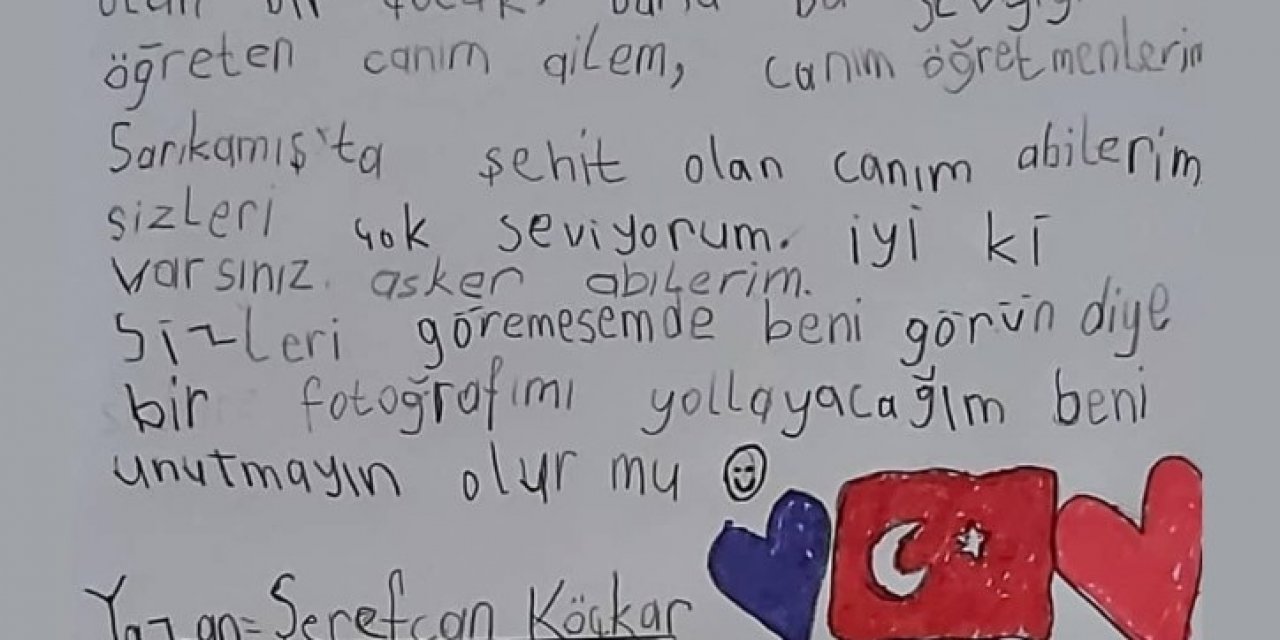 olan bir çocuk, bana bu sevgiyi
öğreten canım ailem, canım öğretmenlerim
Sarıkamış'ta şehit olan canım abilerim
sizleri çok seviyorum. iyi ki
varsınız. asker abilerim.
Sizleri göremesemde beni görün diye
bir fotoğrafımı yollayacağım beni
unutmayın olur mu
Yazan=Şerefcan Köçkar